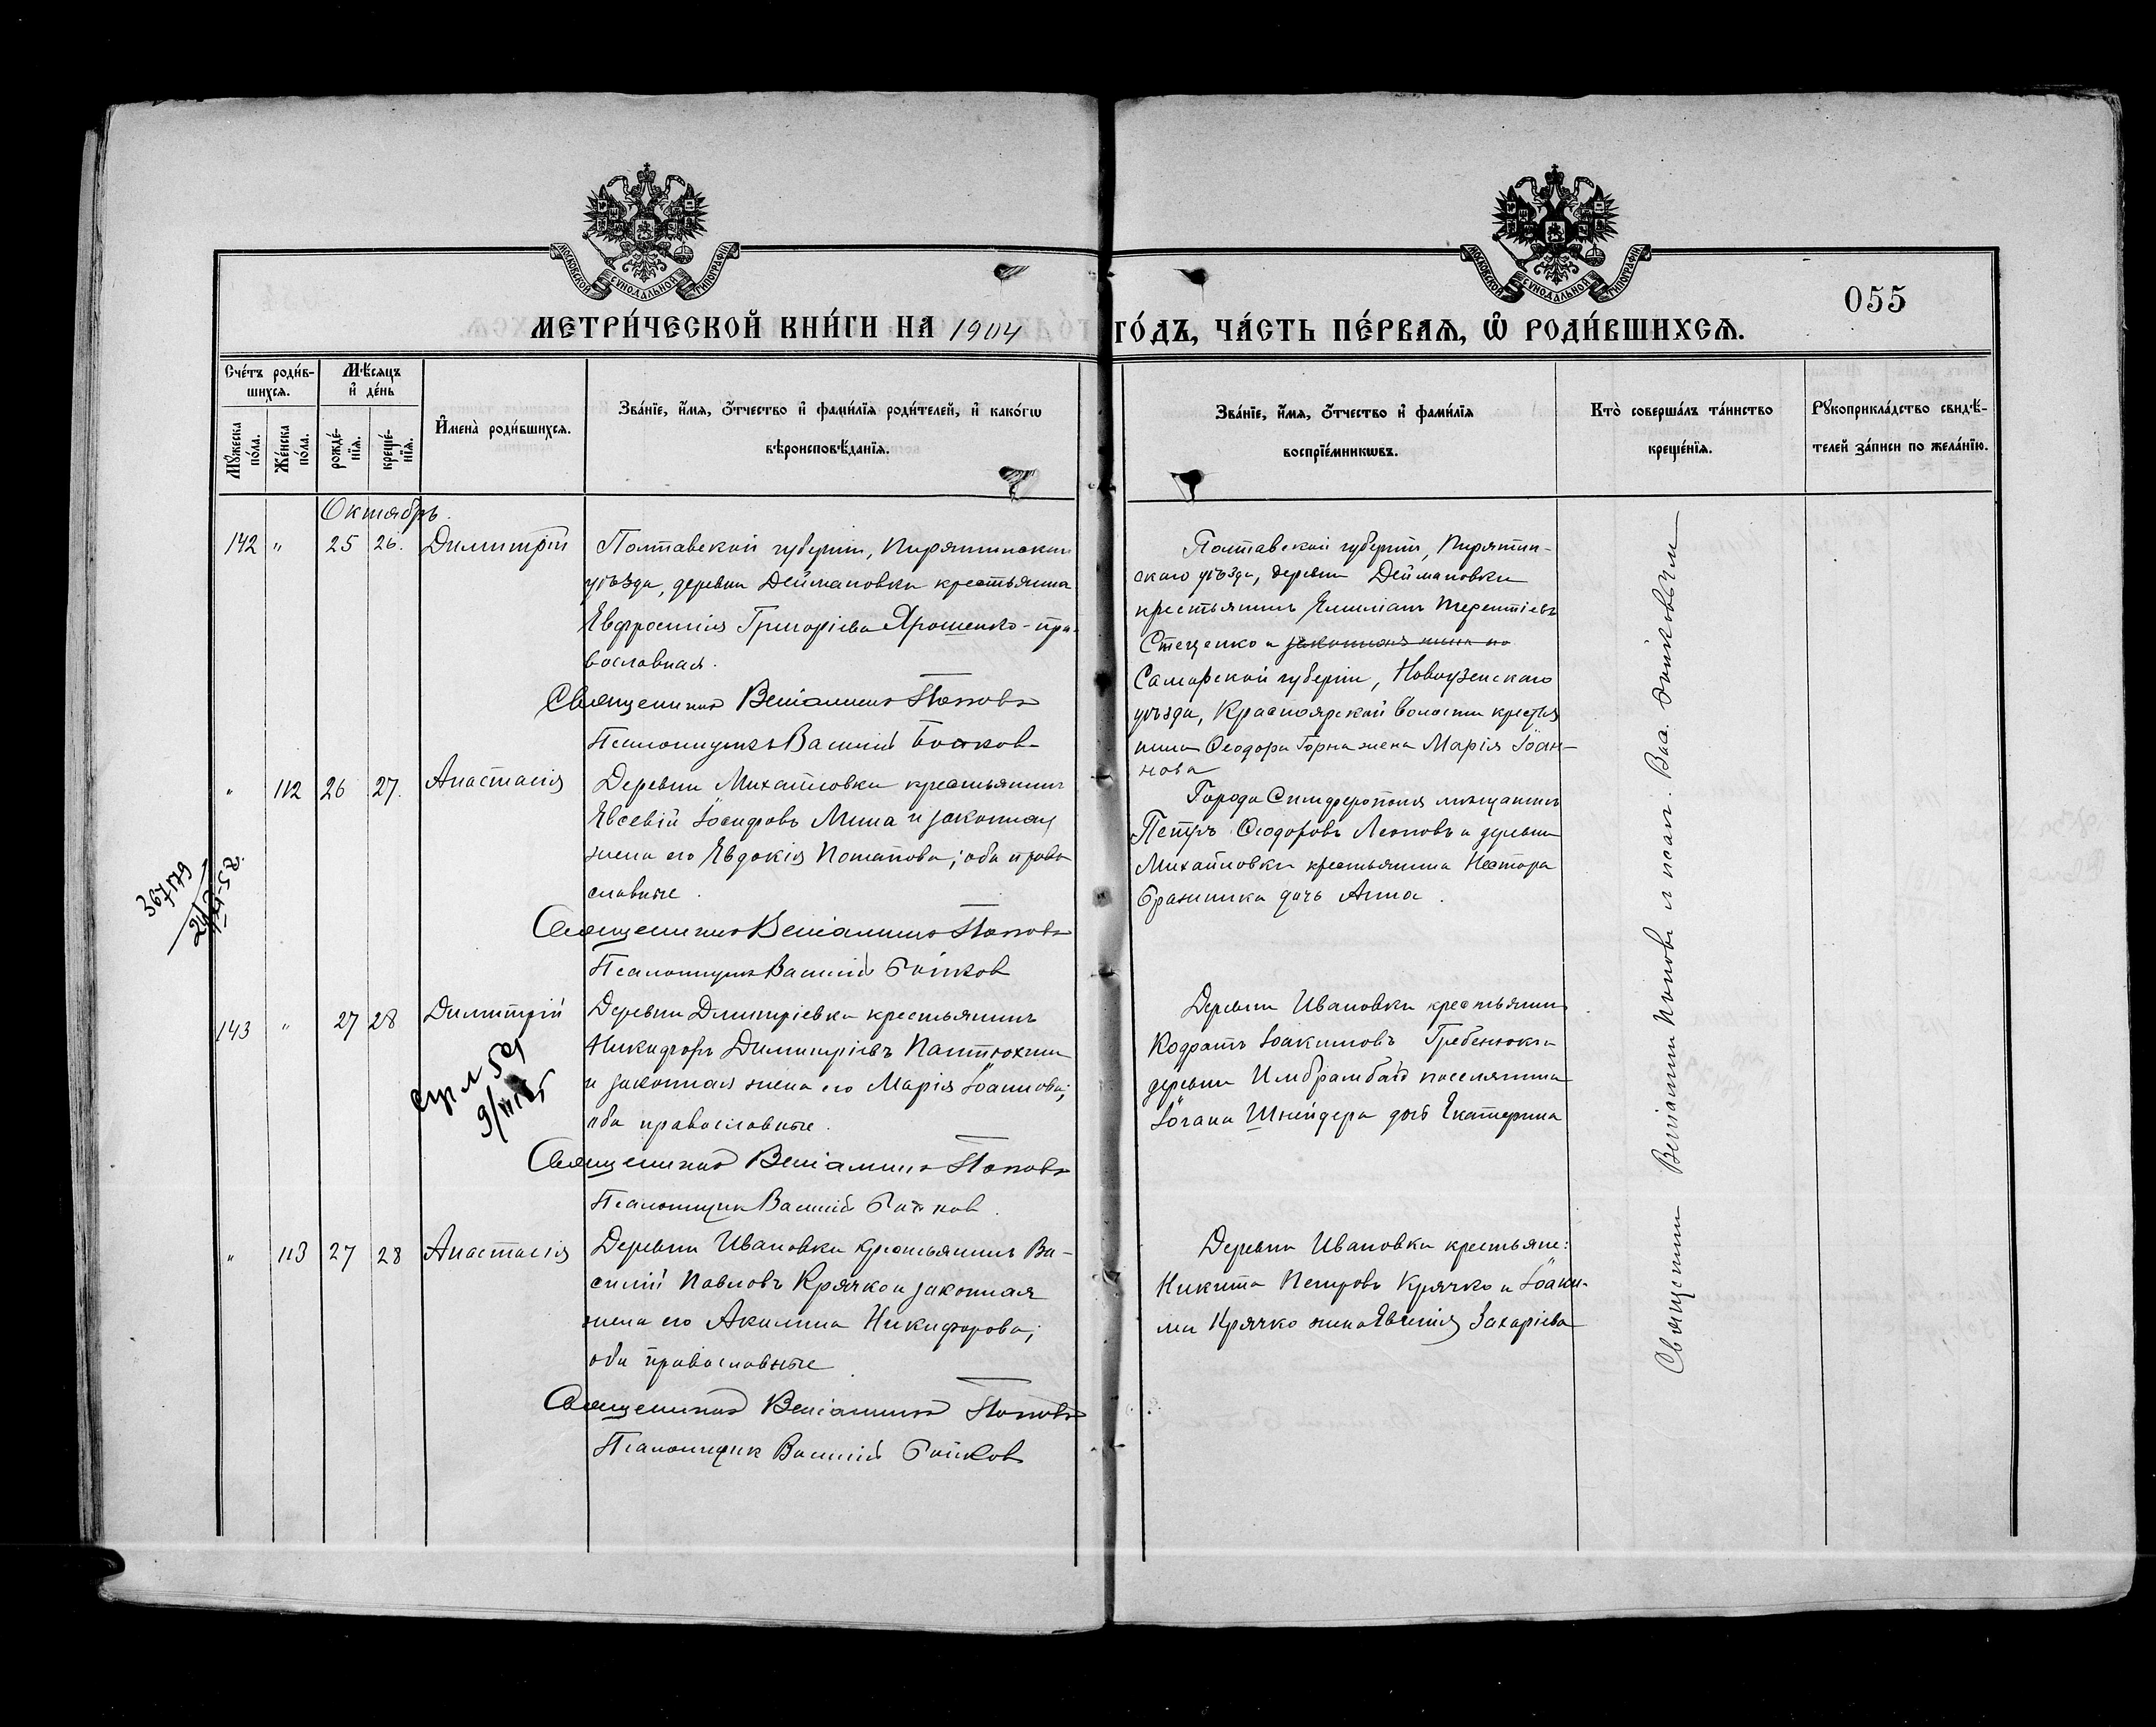 МОСКОВСКОЙ СѴНОДАЛЬНОЙ ТИПОГРАФІИ
МОСКОВСКОЙ СѴНОДАЛЬНОЙ ТИПОГРАФІИ
055
МЕТРИ́ЧЕСКОЙ КНИ́ГИ НА 1904 ГО́ДЪ, ЧА́СТЬ ПЕ́РВАѦ, Ѽ РОДИ́ВШИХСѦ.
Сче́тъ роди́в-
шихся.
Мѣ́сяцъ
и де́нь
Мꙋ́жеска по́ла.
Же́нска по́ла.
рожде́-
нїя.
креще́-
нїя.
И҆мена̀ роди́вшихся.
Зва́нїе, и҆́мя, ѻ҆́тчество и҆ фами́лїя роди́телей, и҆ како́гѡ
вѣроисповѣ́данїя.
Зва́нїе, и҆́мя, ѻ҆́тчество и҆ фами́лїя
воспрїе́мникѡвъ.
Кто̀ соверша́лъ та́инство
креще́нїя.
Рꙋкоприкла́дство свидѣ́-
телей за́писи по жела́нїю.
Октябрь.
142 " 25 26. Димитрій
Полтавской губерніи, Пирятинскаго
уѣзда, деревни Деймановки крестьянка
Евфросинія Григоріева Ярошенко - пра-
вославная.
Священникъ Веніаминъ Поповъ
Псаломщикъ Василій Бойков
Полтавской губерніи, Пирятин-
скаго уѣзда, деревни Деймановки
крестьянинъ Емиліанъ Терентіевъ
Стеценко и законная жена его
Самарской губерніи, Новоузенскаго
уѣзда, Красноярской волости крестья
нина Ѳеодора Горна жена Марія Іоан-
нова
" 112 26 27. Анастасія
Деревни Михайловки крестьянинъ
Евсевій Іосифовъ Мина и законная
жена его Евдокія Потапова; оба право
славные.
Священникъ Веніаминъ Поповъ
Псаломщикъ Василій Бойков
Города Симферополя мѣщанинъ
Петръ Ѳеодоровъ Леоновъ и деревни
Михайловки крестьянина Нестора
Бражника дочь Анна.
367179
143 " 27 28 Димитрій
Деревни Димитріевки крестьянинъ
Никифоръ Димитріевъ Пантюхинъ
и законная жена его Марія Іоаннова;
оба православные.
Священникъ Веніаминъ Поповъ
Псаломщикъ Василій Бойков.
Деревни Ивановки крестьянинъ
Кодратъ Іоакимовъ Гребенюкъ и
деревни поселянина
Іогана Шнейдера дочь Екатерина
" 113 27 28 Анастасія
Деревни Ивановки крестьянинъ Ва-
силій Павловъ Крячко и законная
жена его Акилина Никифорова;
оба православные.
Священникъ Веніаминъ Поповъ
Псаломщик Василій Бойков
Деревни Ивановки крестьяне:
Никита Петровъ Крячко и Іоаки-
ма Крячко жена Евгенія Захаріева
Священник Веніамин Поповъ и псал. Вас.